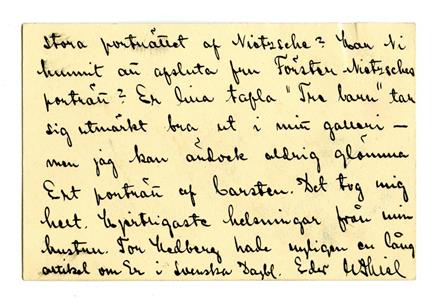 stora porträttet af Nietzsche? Har Ni
hunnit att afsluta fru Förster-Nietzsches
porträtt? Er lilla tafla "Tre barn" tar
sig utmärkt bra ut i mitt galleri –
men jag kan ändock aldrig glömma
Ert porträtt af Carsten. Det tog mig
helt. Hjertligaste helsningar från min
hustru. Tor Hedberg hade nyligen en lång
artikel om Er i Svenska Dagbl. Eder EThiel